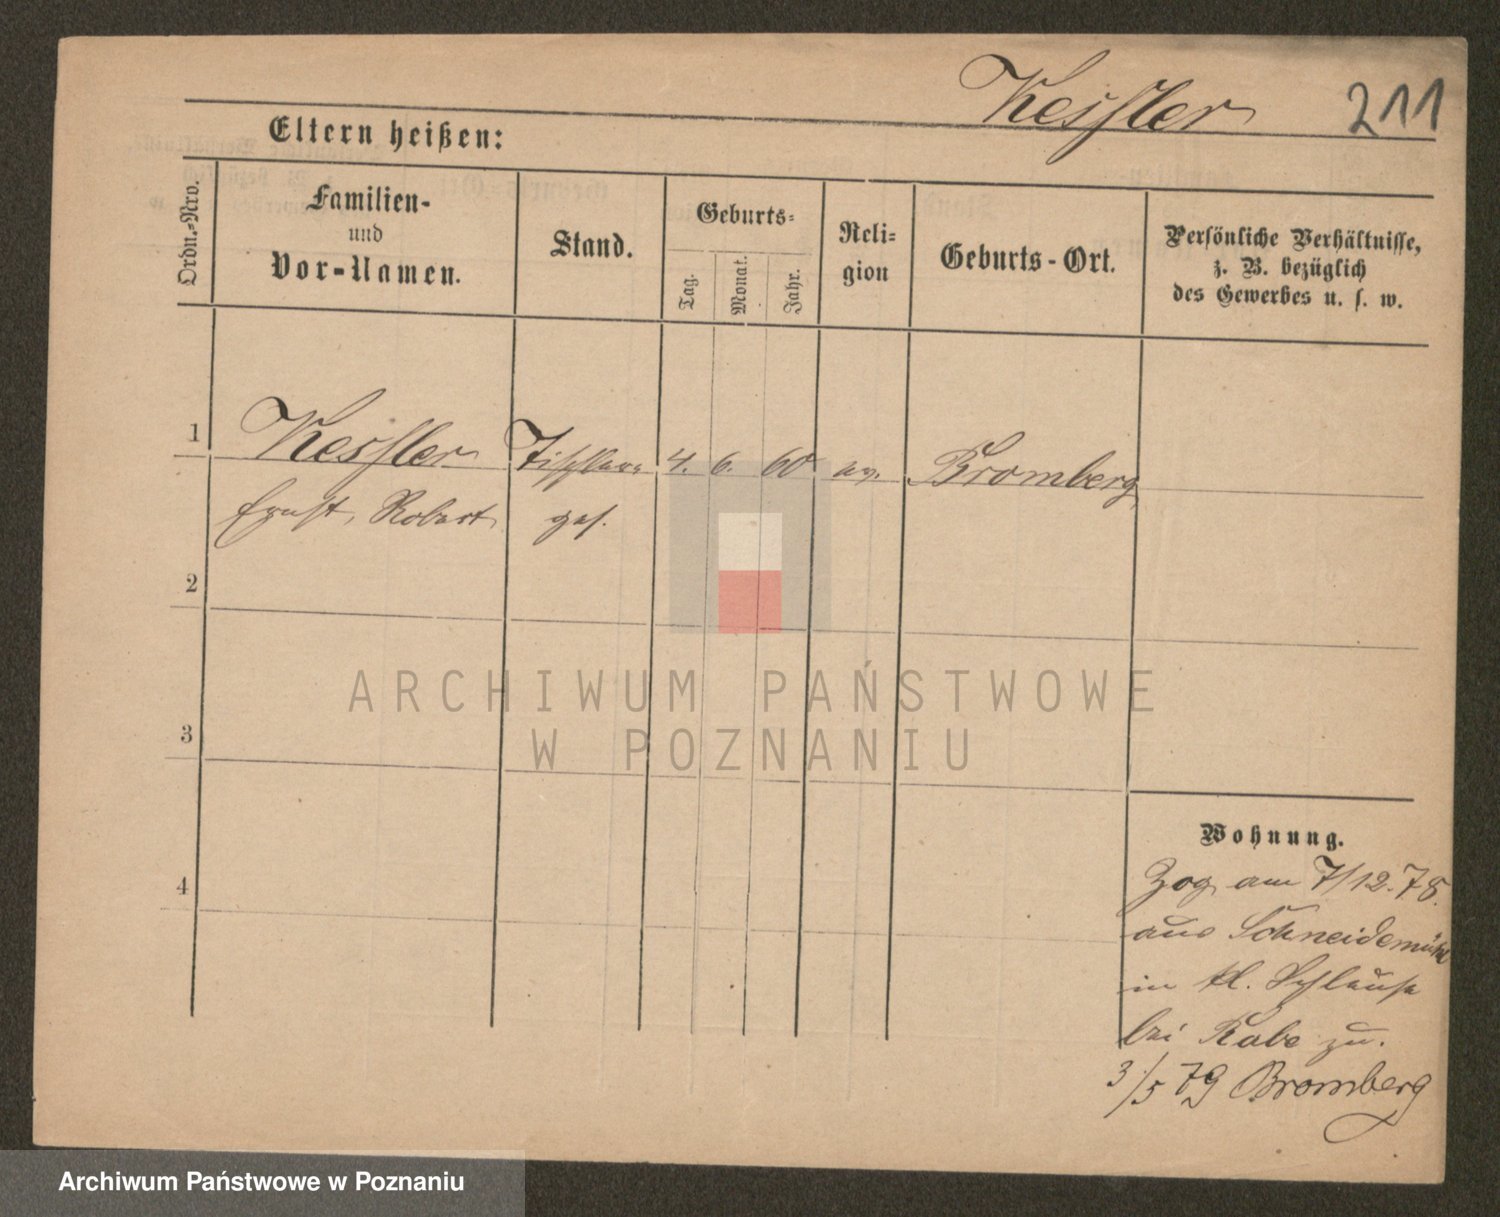 Kessler 211
Eltern heißen:
Ordn.-Nro.
Familien-
und
Vor-Namen.
Stand.
Geburts-
Tag.
Monat.
Jahr.
Reli-
gion
Geburts-Ort.
Persönliche Verhältnisse,
z. B. bezüglich
des Gewerbes u. s. w.
1 Kessler Tischler 4. 6. 60 ev. Bromberg
Ernst, Robert ges.
2
3
4
Wohnung.
Zog am 7/12.78.
aus Schneidemühl
in kl. Schleuse
bei Rabe zu.
3/5 79 Bromberg
ARCHIWUM PAŃSTWOWE
W POZNANIU
Archiwum Państwowe w Poznaniu